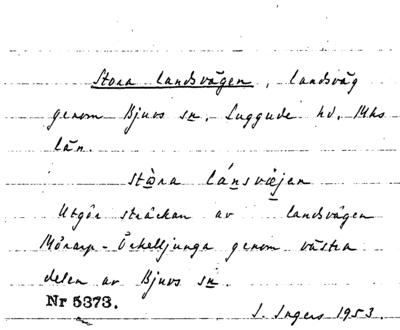 Stora landsvägen, landsväg
genom Bjuvs sn. Luggude hd. Mhs
län.
stòra lánsvæjen
Utgör sträckan av landsvägen
Mörarp - Örkelljunga genom västra
delen av Bjuvs sn.
Nr 5373.
I. Ingers 1953.